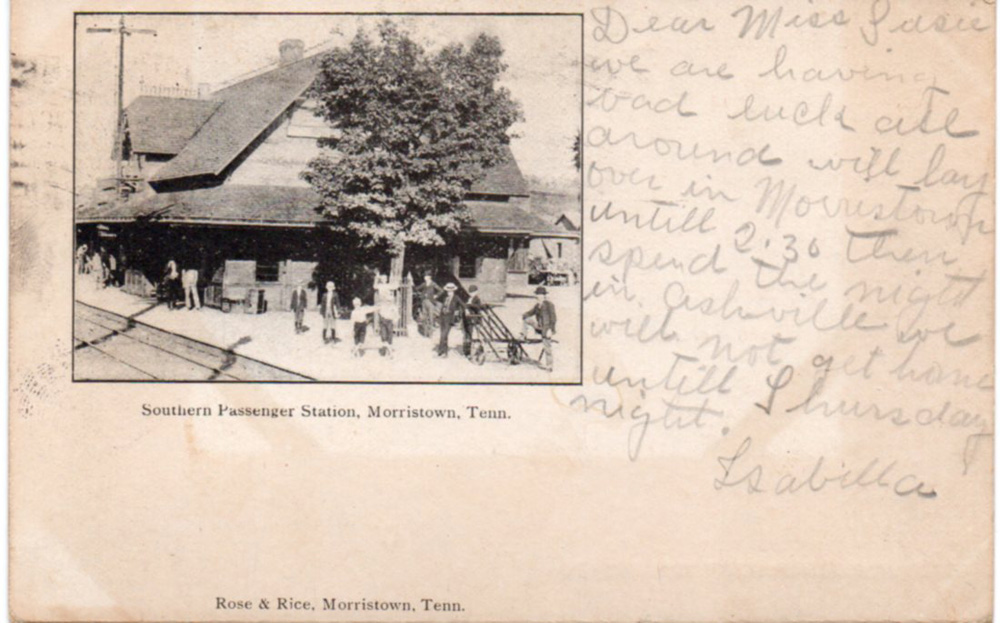 Dear Miss Susie
we are having
bad luck all
around will lay
over in Morristown
untill 2.30 then
spend the night
in Ashville we
will not get home
untill Thursday
night.
Isabilla
Southern Passenger Station, Morristown, Tenn.
Rose & Rice, Morristown, Tenn.